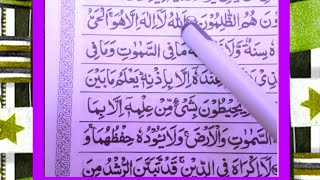 ون هم الظلمون الله لا اله الا هو الحي
سنة ولا نوم له ما فى السموت وما فى
ذى يشفع عنده الا باذنه يعلم ما بين
ولا يحيطون بشىء من علمه الا بما
السموت والارض ولا يئوده حفظهما و
لا اكراه فى الدين قد تبين الرشد من